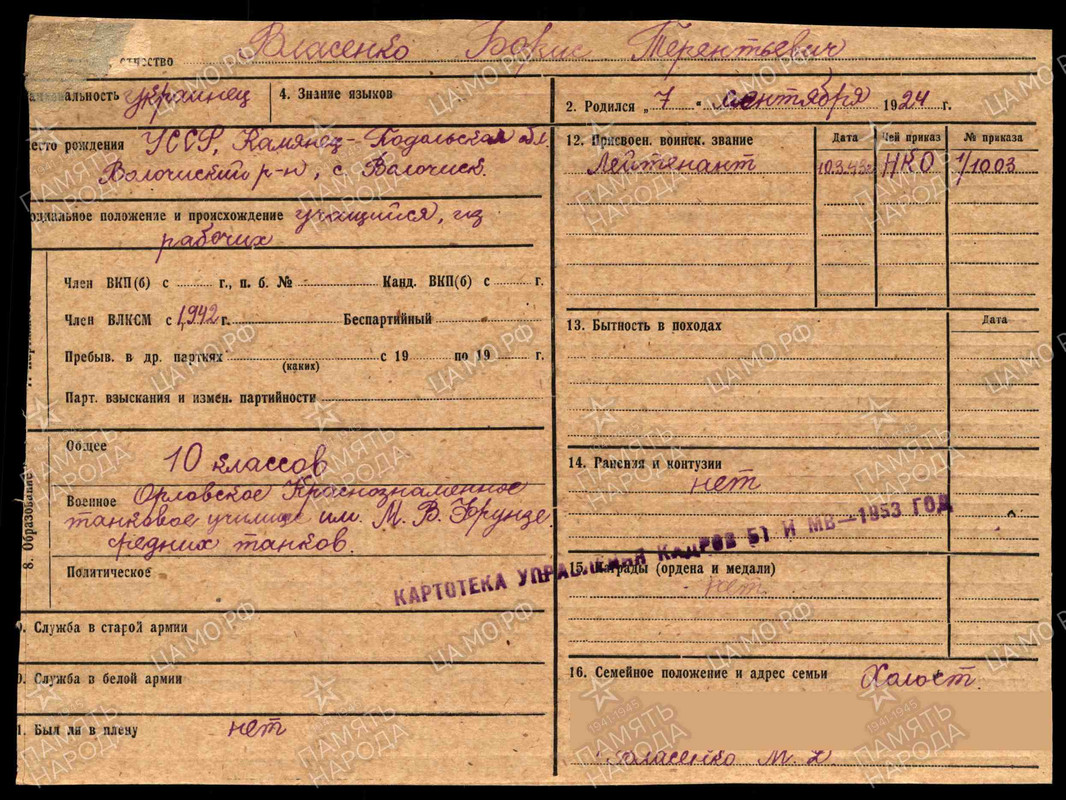 Власенко Борис Терентьевич
отчество
национальность украинец
4. Знание языков
2. Родился „ 7 " сентября 1924 г.
место рождения УССР, Камянец-Подольская обл.
Волочиский р-н, с. Волочиск.
социальное положение и происхождение учащийся, из
рабочих
Член ВКП(б) с г., п. б. № Канд. ВКП(б) с г.
Член ВЛКСМ с 1942 г. Беспартийный
Пребыв. в др. партиях с 19 по 19 г.
(каких)
Парт. взыскания и измен. партийности
8. Образование
Общее
10 классов
Военное Орловское Краснознаменное
танковое училище им. М. В. Фрунзе.
средних танков.
Политическое
9. Служба в старой армии
0. Служба в белой армии
1. Был ли в плену нет
12. Присвоен. воинск. звание Дата Чей приказ № приказа
Лейтенант 10.3.43г НКО 1/1003
13. Бытность в походах Дата
14. Ранения и контузии
нет
КАРТОТЕКА УПРАВЛЕНИЯ КАДРОВ БТ И МВ—1953 ГОД
15. Награды (ордена и медали)
нет
16. Семейное положение и адрес семьи Холост.
Власенко М.
ПАМЯТЬ НАРОДА
1941-1945
ЦАМО.РФ